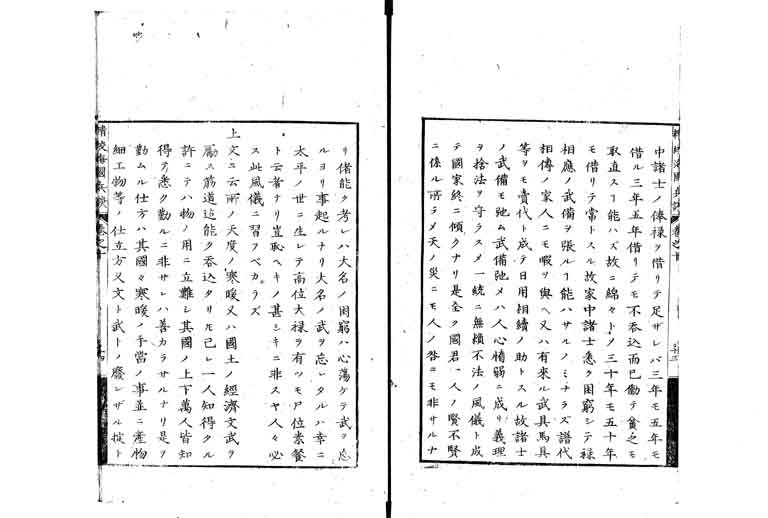 中諸士ノ俸禄ヲ借リテ足ザレバ三年モ五年モ
借ル三年五年借リテモ不呑込而已働テ貧之モ
取直スヿ能ハズ故ニ綿々トノ三十年モ五十年
モ借リテ當トスル故家中諸士悉ク困窮シテ禄
相應ノ武備ヲ張ルヿ能ハサルノミナラズ譜代
相傳ノ家人ニモ暇ヲ與ヘ又ハ有來ル武具馬具
等ヲモ賣代ト成テ日用相續ノ助トスル故諸士
ノ武備モ弛ム武備弛メハ人心惰弱ニ成リ義理
ヲ捨法ヲ守ラスメ一統ニ無頼不法ノ風儀ト成
テ國家終ニ傾クナリ是全ク國君一人ノ賢不賢
ニ係ル所ラメ天ノ災ニモ人ノ咎ニモ非サルナ
精校海國兵談 卷之十 十三
リ偖能ク考レハ大名ノ困窮ハ心蕩ケテ武ヲ忘
ルヨリ事起ルナリ大名ノ武ヲ忘レタルハ幸ニ
太平ノ世ニ生レテ高位大禄ヲ有ツモ尸位素餐
ト云者ナリ豈恥ヘキノ甚シキニ非スヤ人々必
ス此風儀ニ習フベカラズ
上文ニ云所ノ天度ノ寒暖又ハ國土ノ經濟文武ヲ
勵ス筋道迠能ク呑込タリ𪜈己レ一人知得タル
許ニテハ物ノ用ニ立難シ其國ノ上下萬人皆知
得テ悉ク勤ルニ非サレハ善カラサルナリ是ヲ
勤ムル仕方ハ其國々寒暖ノ手當ノ事並ニ產物
細工物等ノ仕立方又文ト武トノ廢レザル掟ト
精校海國兵談 卷之十 十四